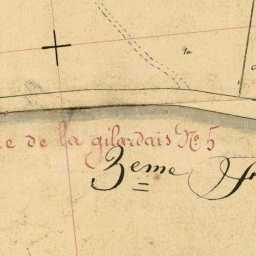 e de la gilardais N.º 5
3eme